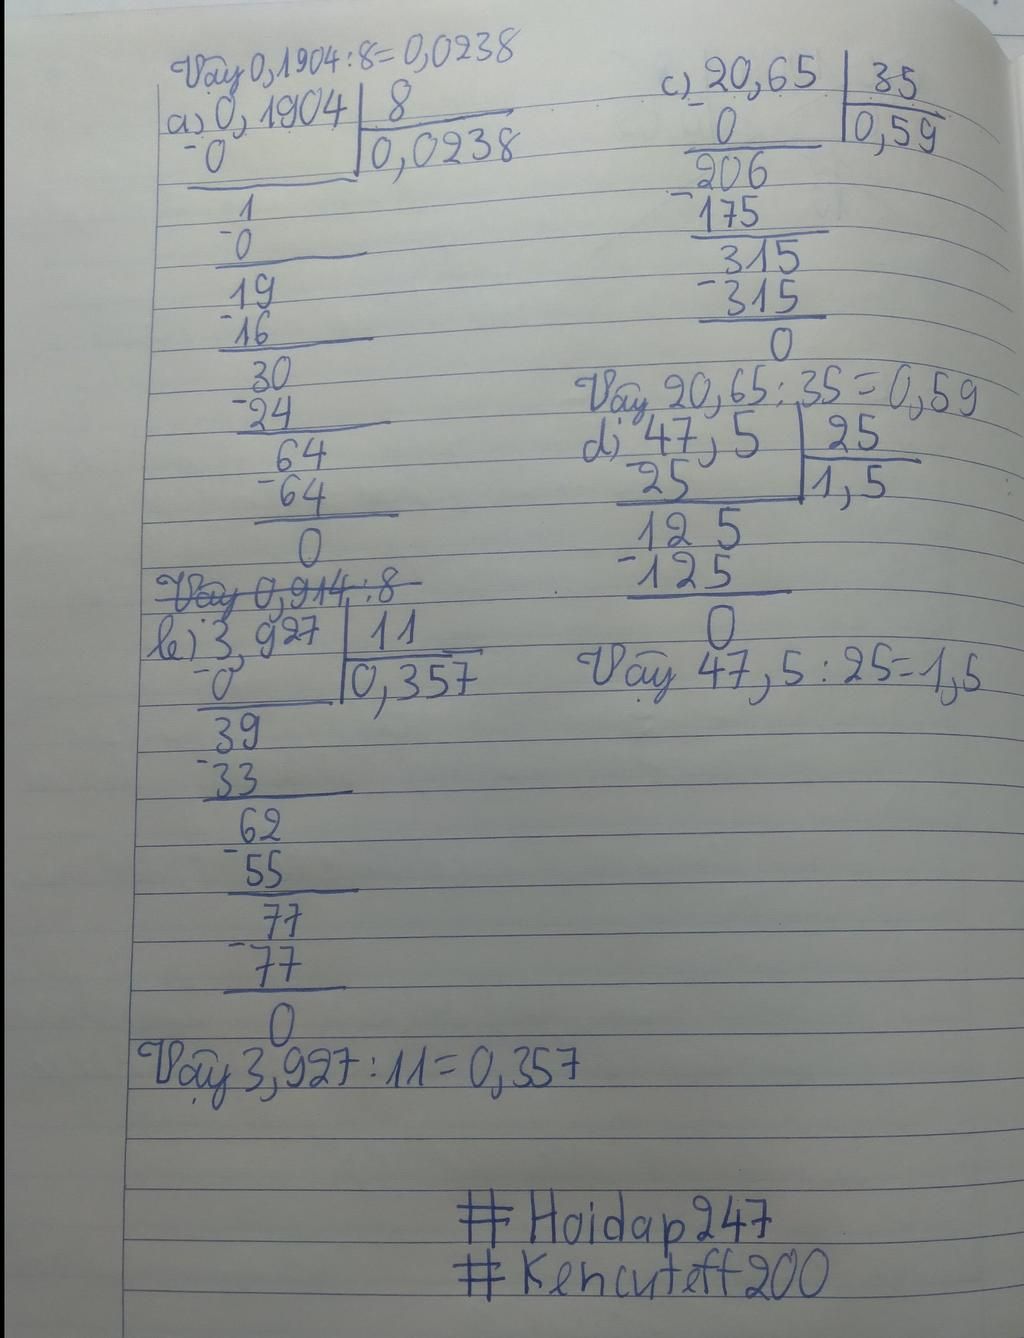 Vậy 0,1904:8=0,0238
a) 0,1904 8
-0 0,0238
1
-0
19
-16
30
-24
64
-64
0
Vậy 0,914:8
b) 3,927 11
-0 0,357
39
-33
62
-55
77
-77
0
Vậy 3,927:11=0,357
c) 20,65 35
-0 0,59
206
-175
315
-315
0
Vậy 20,65:35=0,59
d) 47,5 25
-25 1,5
12 5
-125
0
Vậy 47,5:25=1,5
#Hoidap247
#Kencuteff200